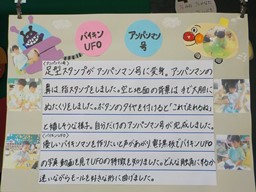 バイキン
UFO
アンパンマン
号
(アンパンマン号)
足型スタンプがアンパンマン号に変身。アンパンマンの
鼻は、指スタンプをしました。空と地面の背景は すて大胆に
ぬたくりをしました。ボタンのタイヤを付けると「これで走れるね」
と嬉しそうな様子。自分だけのアンパンマン号が完成しました。
(バイキンUFO)
優しいバイキンマンを作りたいと声があがり、電子黒板でバイキンUFO
の写真・動画を見てUFOの特徴を知りました。どんな触角にするか
迷いながらモールを好きな形に曲げました。